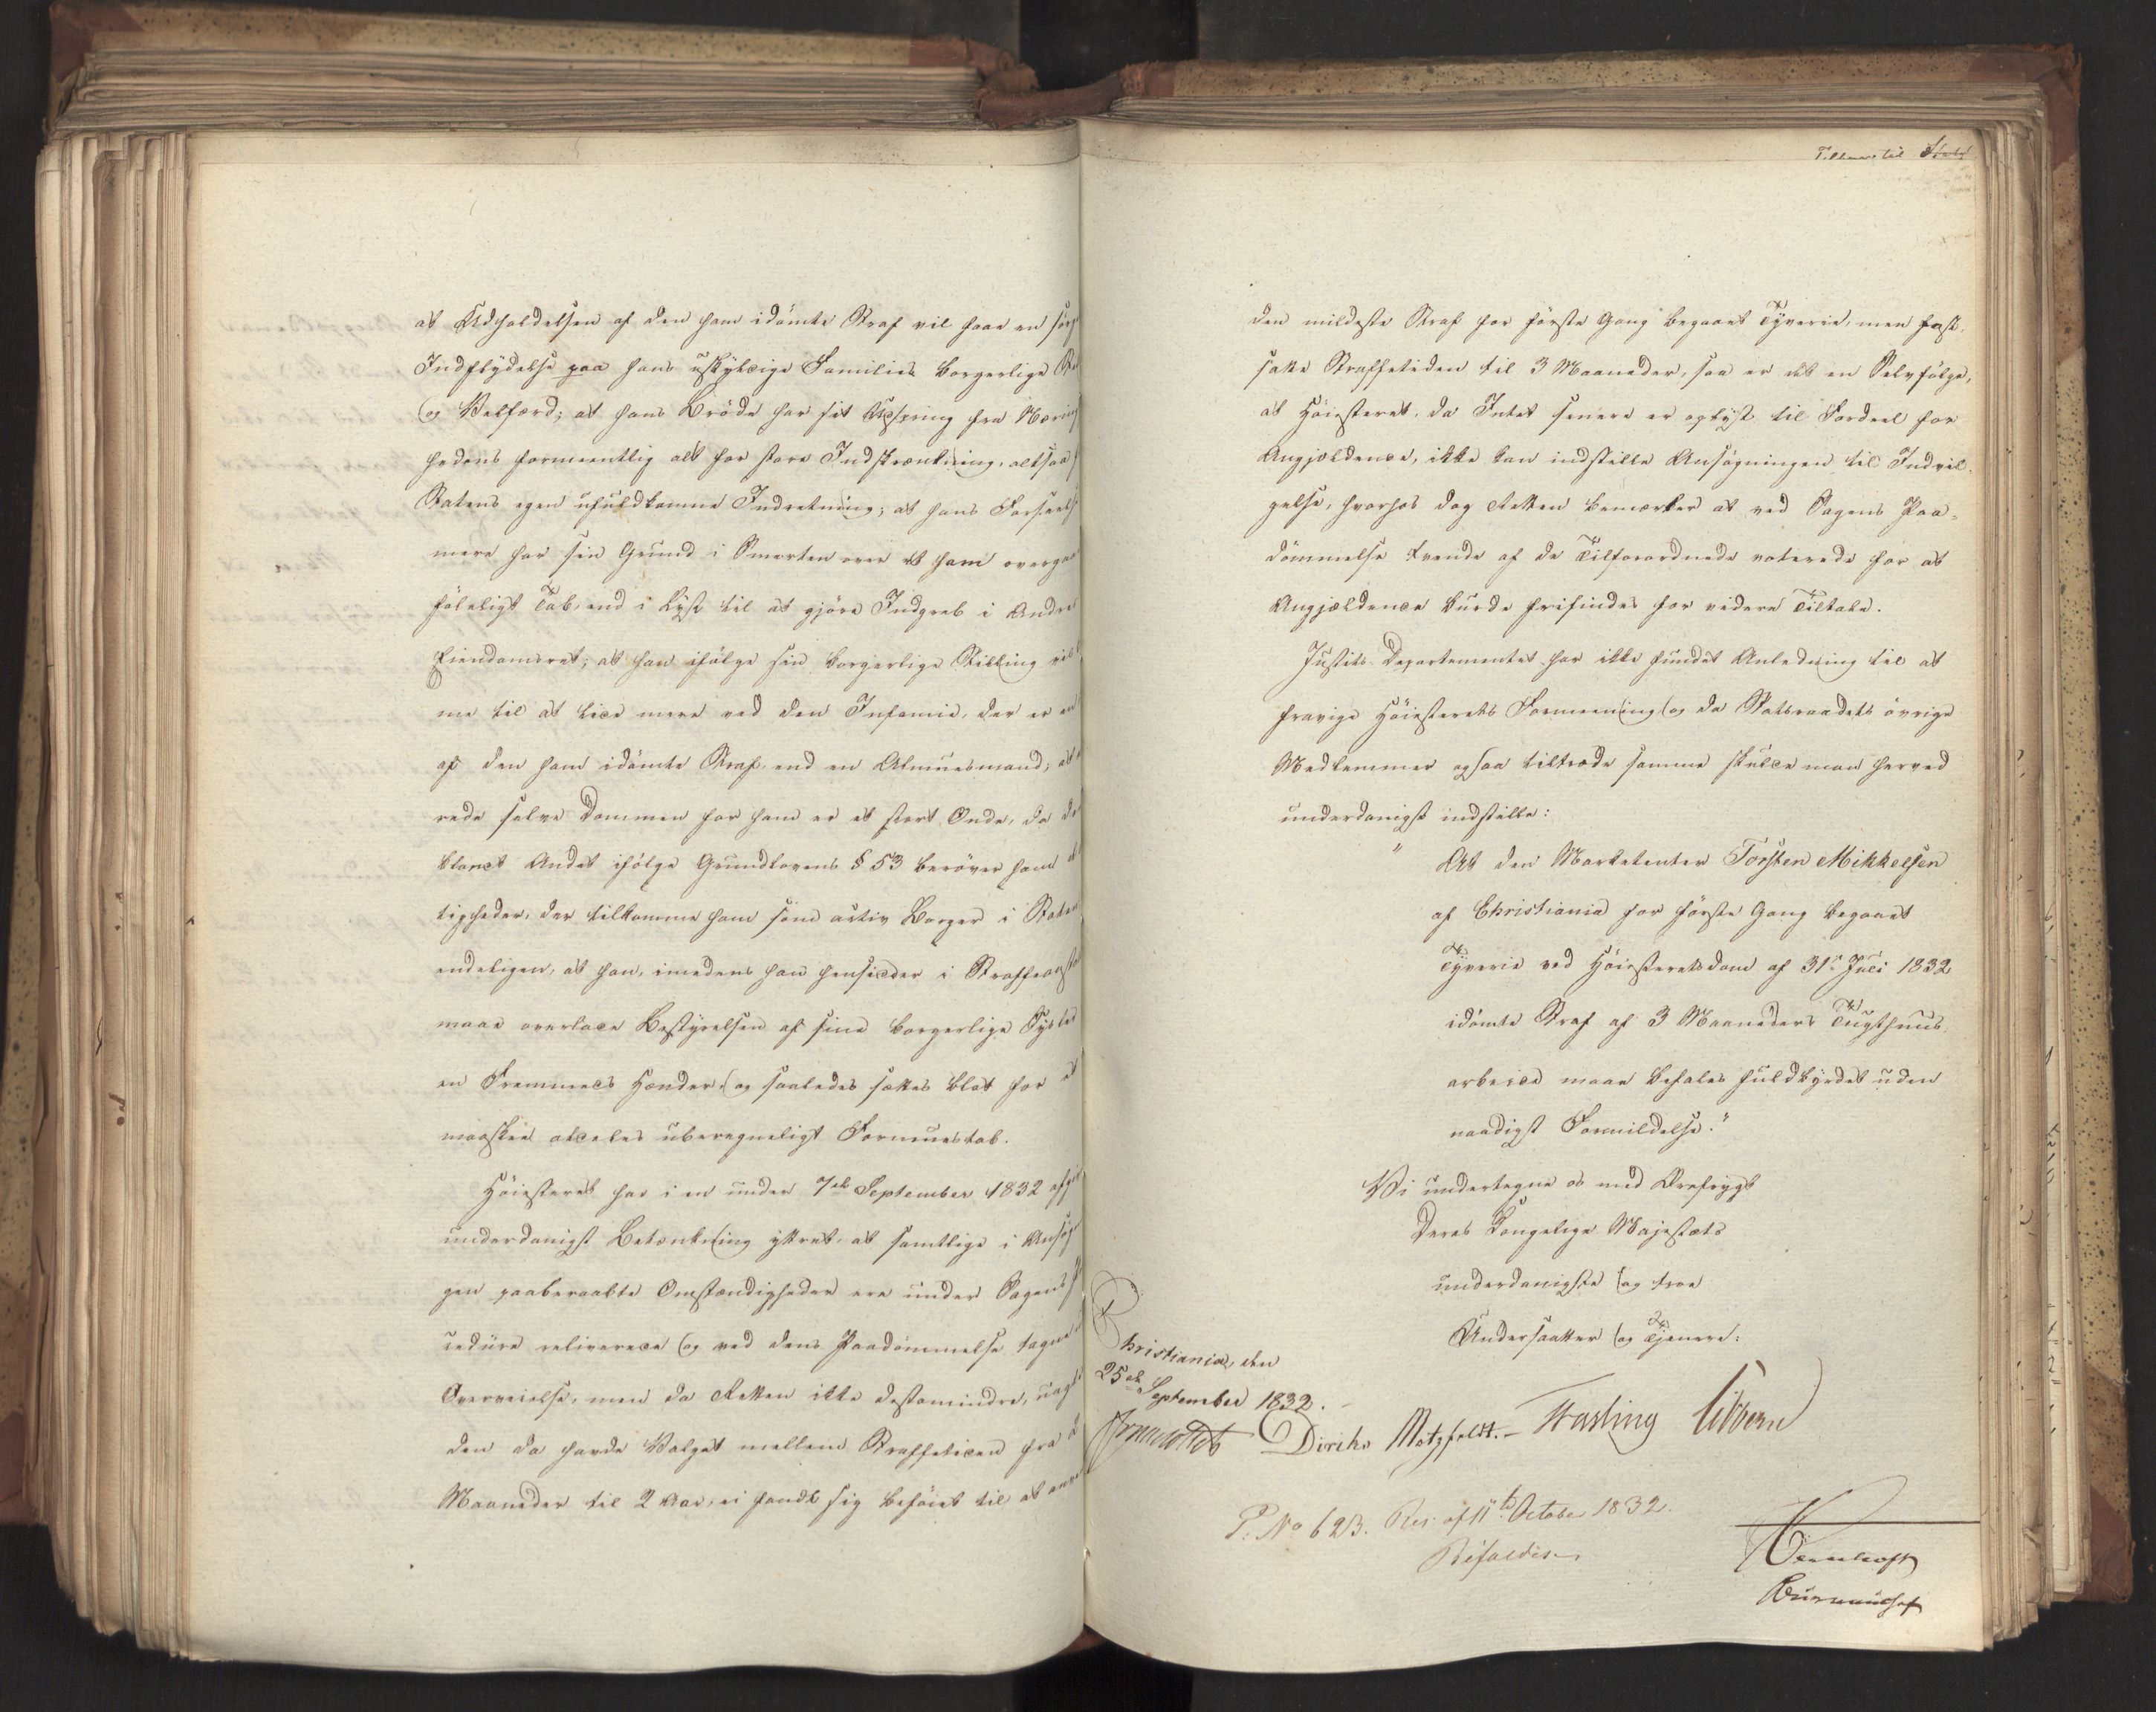 at Udholdelsen af den ham idømte Straf vil faae en
Indflydelse paa hans uskyldige Families borgerlige
og Velfærd; at hans Brøde har sit Udspring fra Næring
hedens formeentlig alt for store Indskrænkning, altsaa
Statens egen ufuldkomne Indretning; at hans Forseelse
mere har sin Grund i Smerten over et ham overgaaet
føleligt Tab, end i Lyst til at gjøre Indgreb i Andres
Eiendomsret; at han ifølge sin borgerlige Stilling vil
me til at lide mere ved den Infamie, der er en
af den ham idømte Straf, end en Almuesmand; at
rede selve Dommen for ham er et stort Onde, da
blandt Andet ifølge Grundlovens § 53 berøver ham
tigheder, der tilkomme ham som activ Borger i Staten
endeligen, at han, imedens han hensidder i Straffeanstal
maae overlade Bestyrelsen af sine borgerlige Sysler
en Fremmeds Hænder, og saaledes sættes blot for et
maaskee aldeles uberegneligt Formuestab.
Høiesteret har i en under 7de September 1832 afgi
underdanigst Betænkning yttret, at samtlige i Ansøg
gen paaberaabte Omstændigheder ere under Sagens
cedure releverede og ved dens Paadømmelse tagne
Overveielse, men da Retten ikke destomindre, uagt
den da havde Valget mellem Straffetiden fra 2
Maaneder til 2 Aar, ei fandt sig beføiet til at anve
Tilhører til
den mildeste Straf for første Gang begaaet Tyverie, men fast-
satte Straffetiden til 3 Maaneder, saa er det en Selvfølge,
at Høiesteret, da Intet senere er oplyst til Fordeel for
Angjældende, ikke kan indstille Ansøgningen til Indvil-
gelse, hvorhos dog Retten bemærker at ved Sagens Paa-
dømmelse tvende af de Tilforordnede voterede for at
Angjældende burde frifindes for videre Tiltale.
Justits-Departementet har ikke fundet Anledning til at
fravige Høiesterets Formeening og da Statsraadets øvrige
Medlemmer ogsaa tiltræde samme skulde man herved
underdanigst indstille:
" At den Marketenter Torsten Mikkelsen
af Christiania for første Gang begaaet
Tyverie ved Høiesteretsdom af 31te Juli 1832
idømte Straf af 3 Maaneders Tugthuus-
arbeide maae befales fuldbyrdet uden
naadigst Formildelse."
Vi undertegne os med Ærefrygt
Deres Kongelige Majestæts
underdanigste og troe
Undersaatter og Tjenere:
Christiania, den
25de September 1832.
Diriks Motzfeldt.- Fasting Sibbern
P. No 623. Res. af 11te October 1832.
Bifaldes.